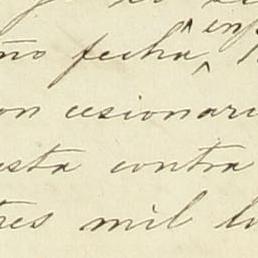 ño fecha
on cesionari
esta contra
tres mil